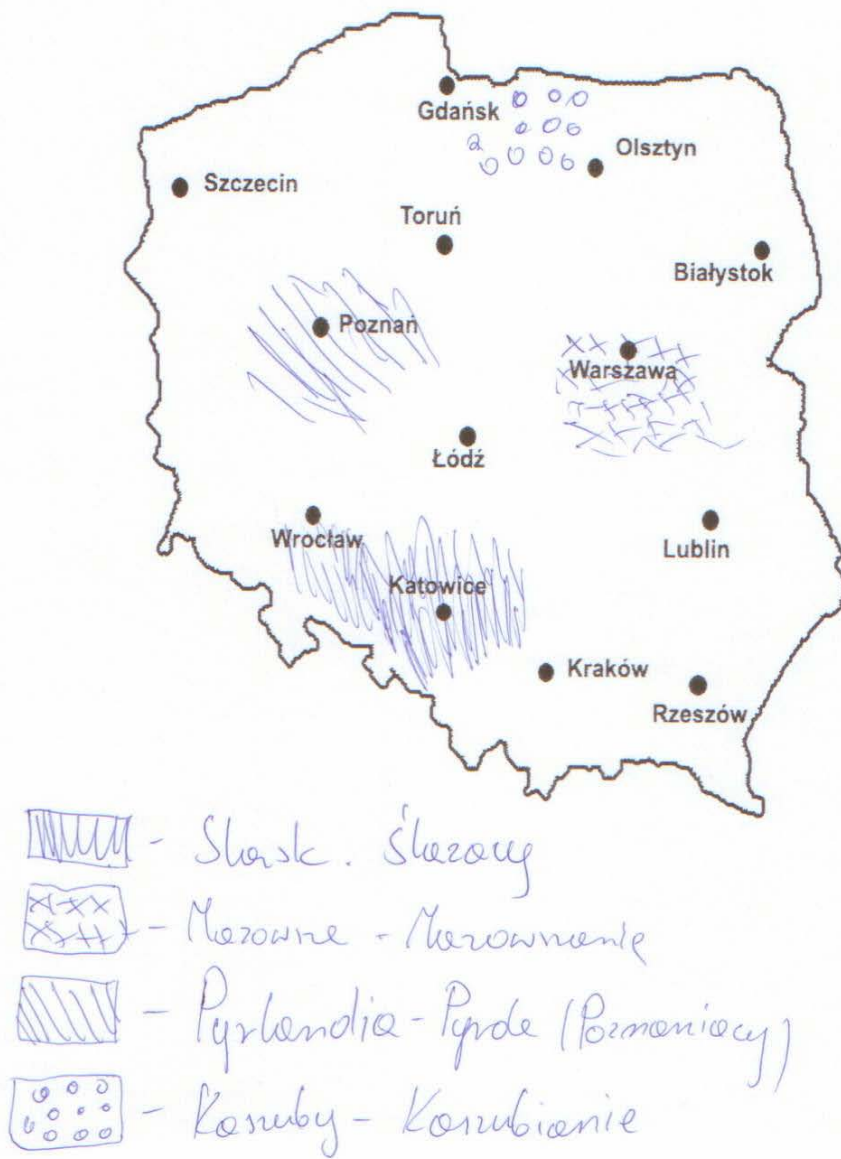 Gdańsk
Olsztyn
Szczecin
Toruń
Białystok
Poznań
Warszawa
Łódź
Wrocław
Lublin
Katowice
Kraków
Rzeszów
- Śląsk. Ślązacy
- Mazowsze - Mazowszanie
- Pyrlandia - Pyrde (Poznaniacy)
- Kaszuby - Kaszubianie